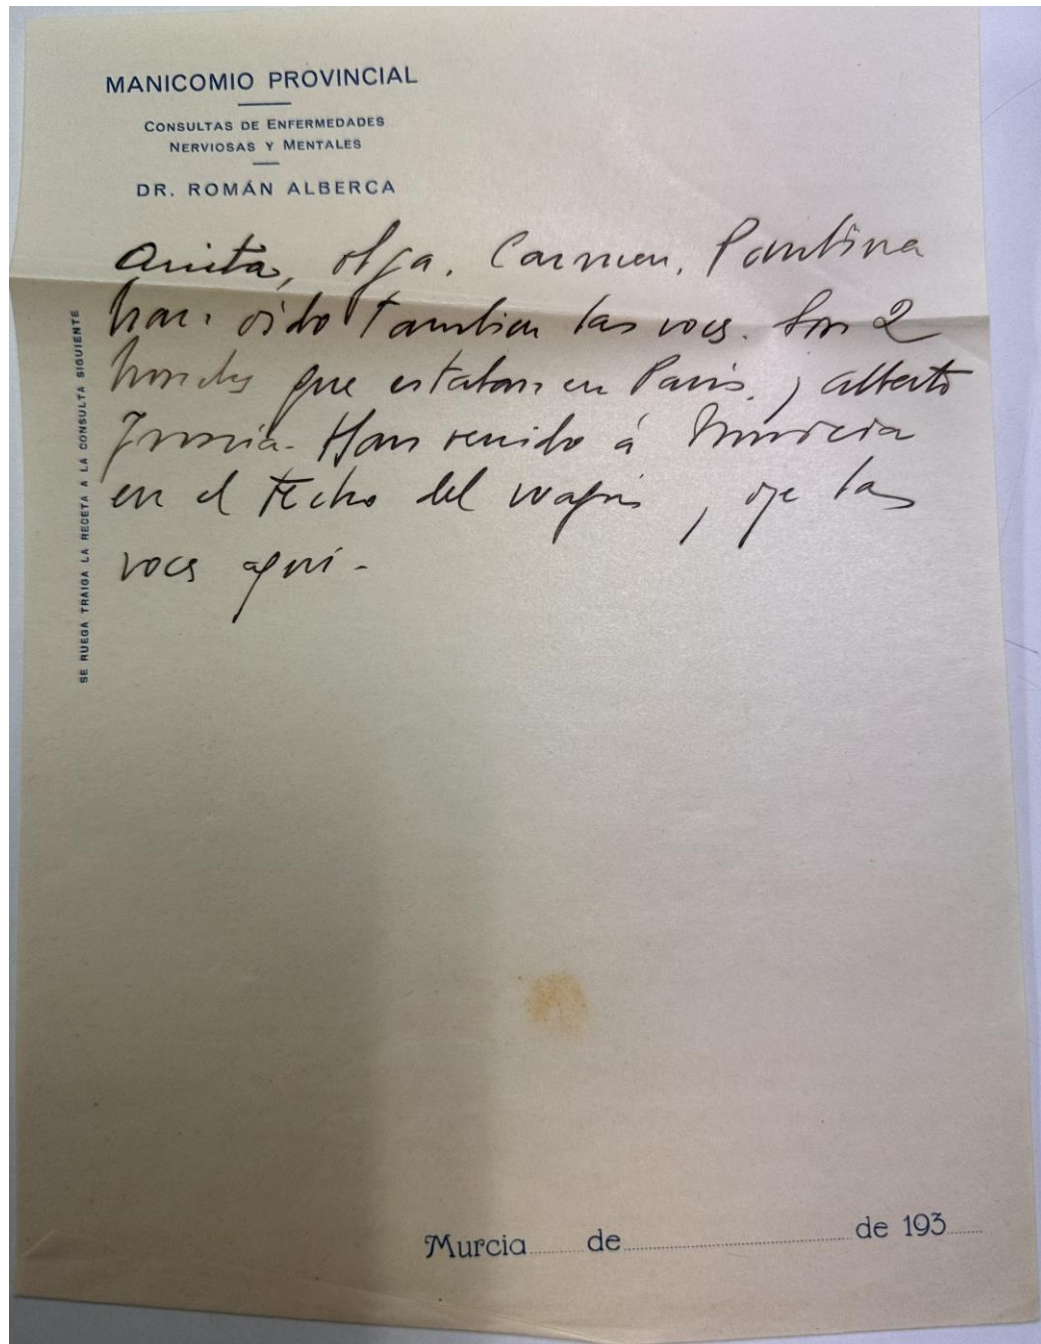 MANICOMIO PROVINCIAL
CONSULTAS DE ENFERMEDADES
NERVIOSAS Y MENTALES
DR. ROMÁN ALBERCA
SE RUEGA TRAIGA LA RECETA A LA CONSULTA SIGUIENTE
Anita, Olga, Carmen, Paulina
han oido tambien las voces. Son 2
que estaban en Paris, y Alberto
Han venido á Murcia
en el techo del vagón, y oye las
voces aquí.
Murcia de de 193